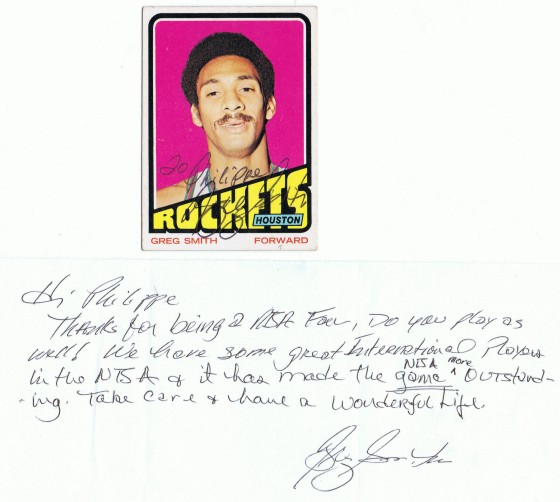 To Philippe
ROCKETS
HOUSTON
GREG SMITH FORWARD
Hi Philippe
Thanks for being a NBA Fan, Do you play as
well! We have some great International Players
in the NBA & it has made the NBA game more Outstand-
-ing. Take care & have a wonderful Life.
Greg Smith